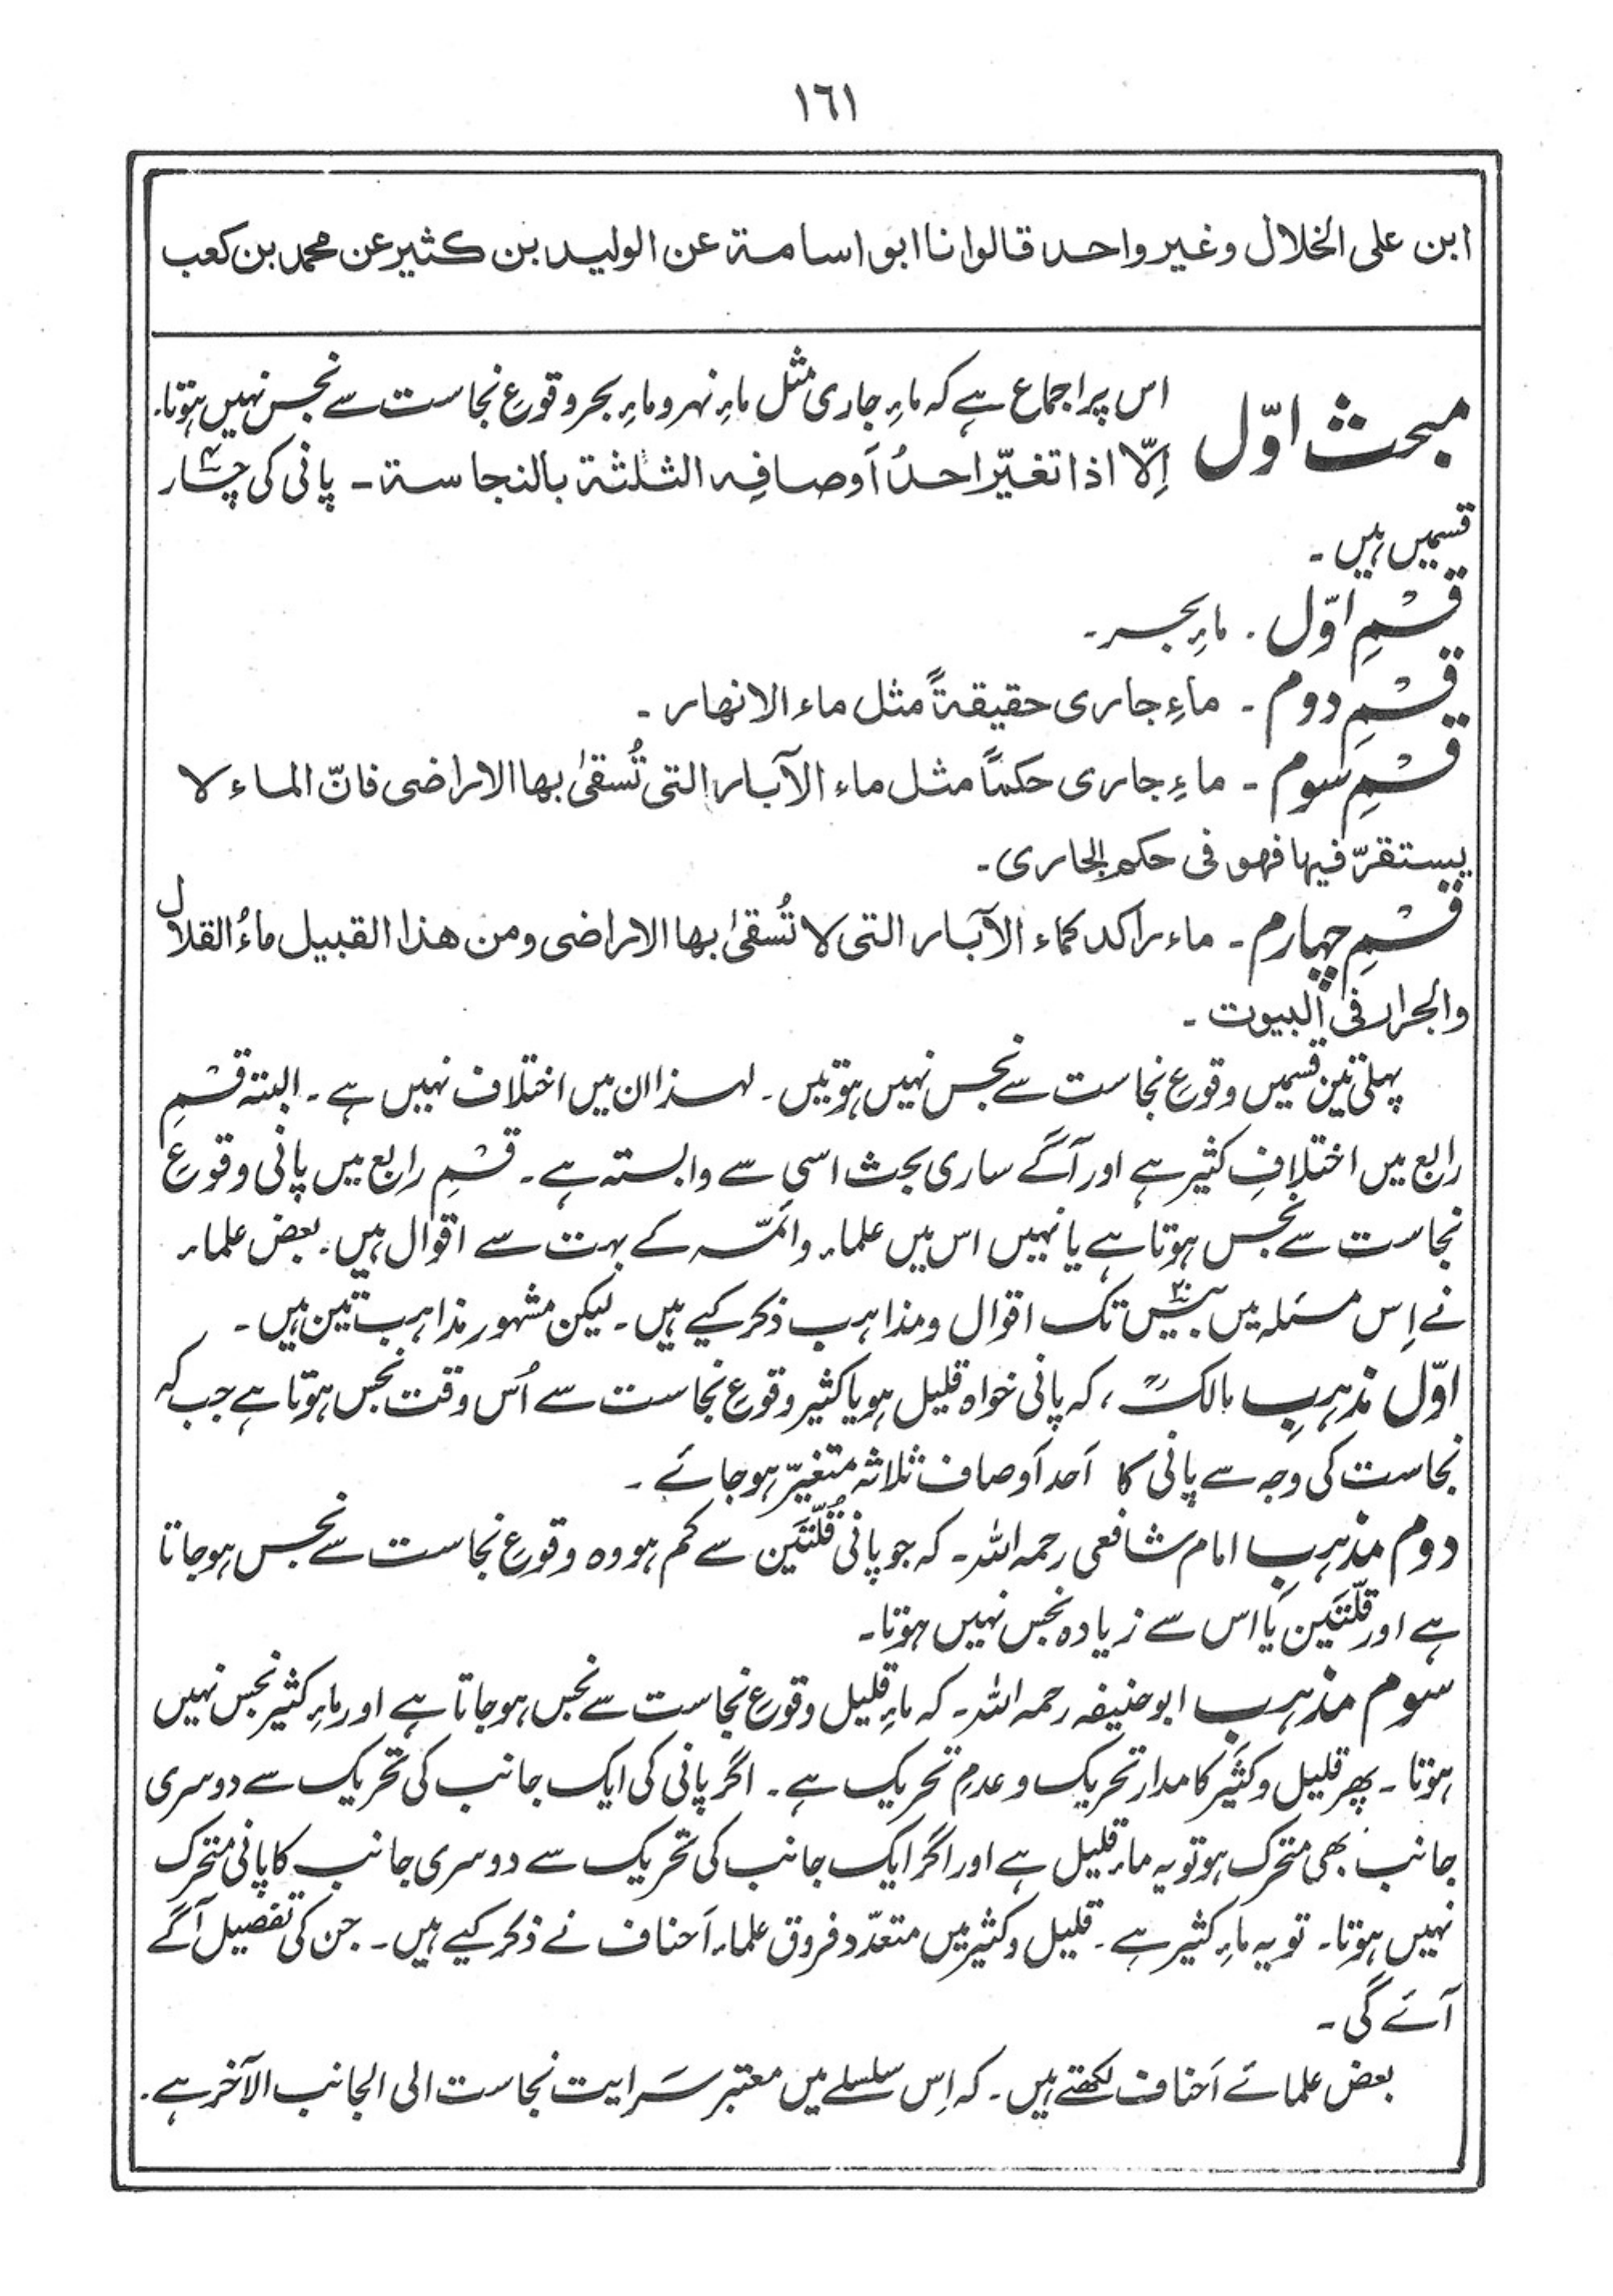 ١٦١
ابن علی الخلال وغیر واحد قالوا نا ابو اسامة عن الولید بن کثیر عن محمد بن کعب
مبحث اوّل اس پر اجماع ہے کہ ماءِ جاری مثل ماءِ نہر و ماءِ بحر وقوعِ نجاست سے نجس نہیں ہوتا۔
اِلّا اذا تغیّر احدُ اَوصافِہ الثلثة بالنجاسة۔ پانی کی چار
قسمیں ہیں۔
قسْمِ اوّل۔ ماءِ بحر۔
قسْمِ دوم۔ ماءِ جاری حقیقةً مثل ماء الانھار۔
قسْمِ سوم۔ ماءِ جاری حکمًا مثل ماء الآبار التی تُسقیٰ بھا الاراضی فانّ الماء لا
یستقرّ فیھا فھو فی حکم الجاری۔
قسْمِ چہارم۔ ماء راکد کماء الآبار التی لا تُسقیٰ بھا الاراضی ومن ھذا القبیل ماءُ القلال
والجرار فی البیوت۔
پہلی تین قسمیں وقوعِ نجاست سے نجس نہیں ہوتیں۔ لہذا ان میں اختلاف نہیں ہے۔ البتہ قسْمِ
رابع میں اختلافِ کثیر ہے اور آگے ساری بحث اسی سے وابستہ ہے۔ قسْمِ رابع میں پانی وقوعِ
نجاست سے نجس ہوتا ہے یا نہیں اس میں علماء وائمّہ کے بہت سے اقوال ہیں۔ بعض علماء
نے اِس مسئلہ میں بیس ۲۰ تک اقوال ومذاہب ذکر کیے ہیں۔ لیکن مشہور مذاہب تین ہیں۔
اوّل مذہبِ مالکؒ، کہ پانی خواہ قلیل ہو یا کثیر وقوعِ نجاست سے اُس وقت نجس ہوتا ہے جب کہ
نجاست کی وجہ سے پانی کا اَحد اَوصاف ثلاثہ متغیّر ہوجائے۔
دوم مذہبِ امام شافعی رحمہ اللہ۔ کہ جو پانی قُلّتَین سے کم ہو وہ وقوعِ نجاست سے نجس ہوجاتا
ہے اور قلّتَین یا اس سے زیادہ نجس نہیں ہوتا۔
سوم مذہب ابوحنیفہ رحمہ اللہ۔ کہ ماءِ قلیل وقوعِ نجاست سے نجس ہوجاتا ہے اور ماءِ کثیر نجس نہیں
ہوتا۔ پھر قلیل وکثیر کا مدار تحریک و عدمِ تحریک ہے۔ اگر پانی کی ایک جانب کی تحریک سے دوسری
جانب بھی متحرک ہو تو یہ ماء قلیل ہے اور اگر ایک جانب کی تحریک سے دوسری جانب کا پانی متحرک
نہیں ہوتا۔ تو یہ ماءِ کثیر ہے۔ قلیل وکثیر میں متعدّد فروق علماء اَحناف نے ذکر کیے ہیں۔ جن کی تفصیل آگے
آئے گی۔
بعض علمائے اَحناف لکھتے ہیں۔ کہ اِس سلسلے میں معتبر سَرایت نجاست الی الجانب الآخر ہے۔